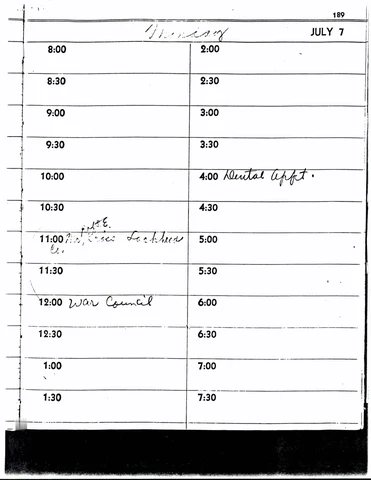 189
Thursday JULY 7
8:00 2:00
8:30 2:30
9:00 3:00
9:30 3:30
10:00 4:00 Dental Appt.
10:30 4:30
11:00 Lockheed 5:00
Co.
11:30 5:30
12:00 War Council 6:00
12:30 6:30
1:00 7:00
1:30 7:30